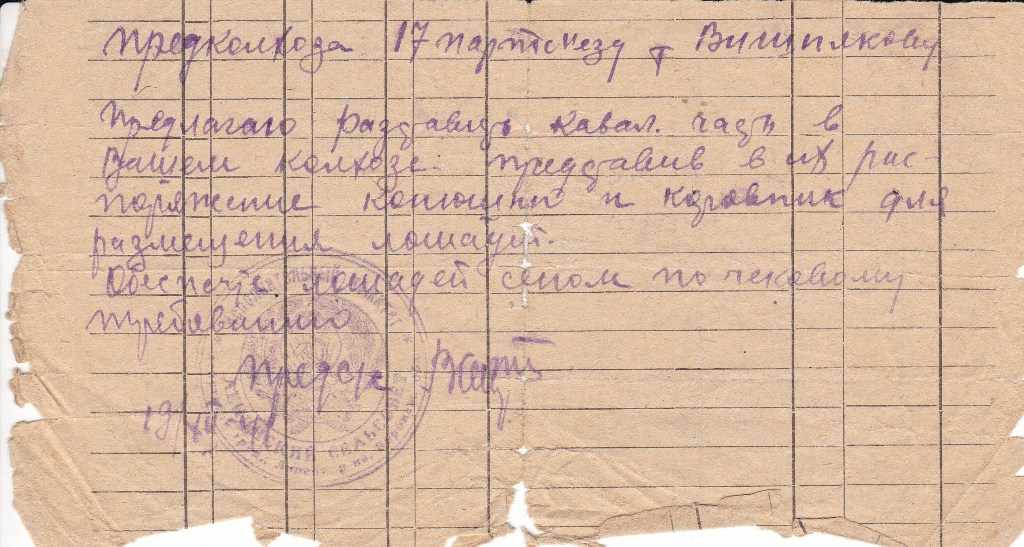 Предколхоза 17 партсъезду т Вишнякову
Предлагаю раздавиць кавал. часть в
Вашем колхозе. представив в их рас-
поряжение конюшни и коровник для
размещения лошадей.
Обеспечте лошадей сеном по чековому
требованию
Предс/с
19/XII
СЕЛЬСОВЕТ